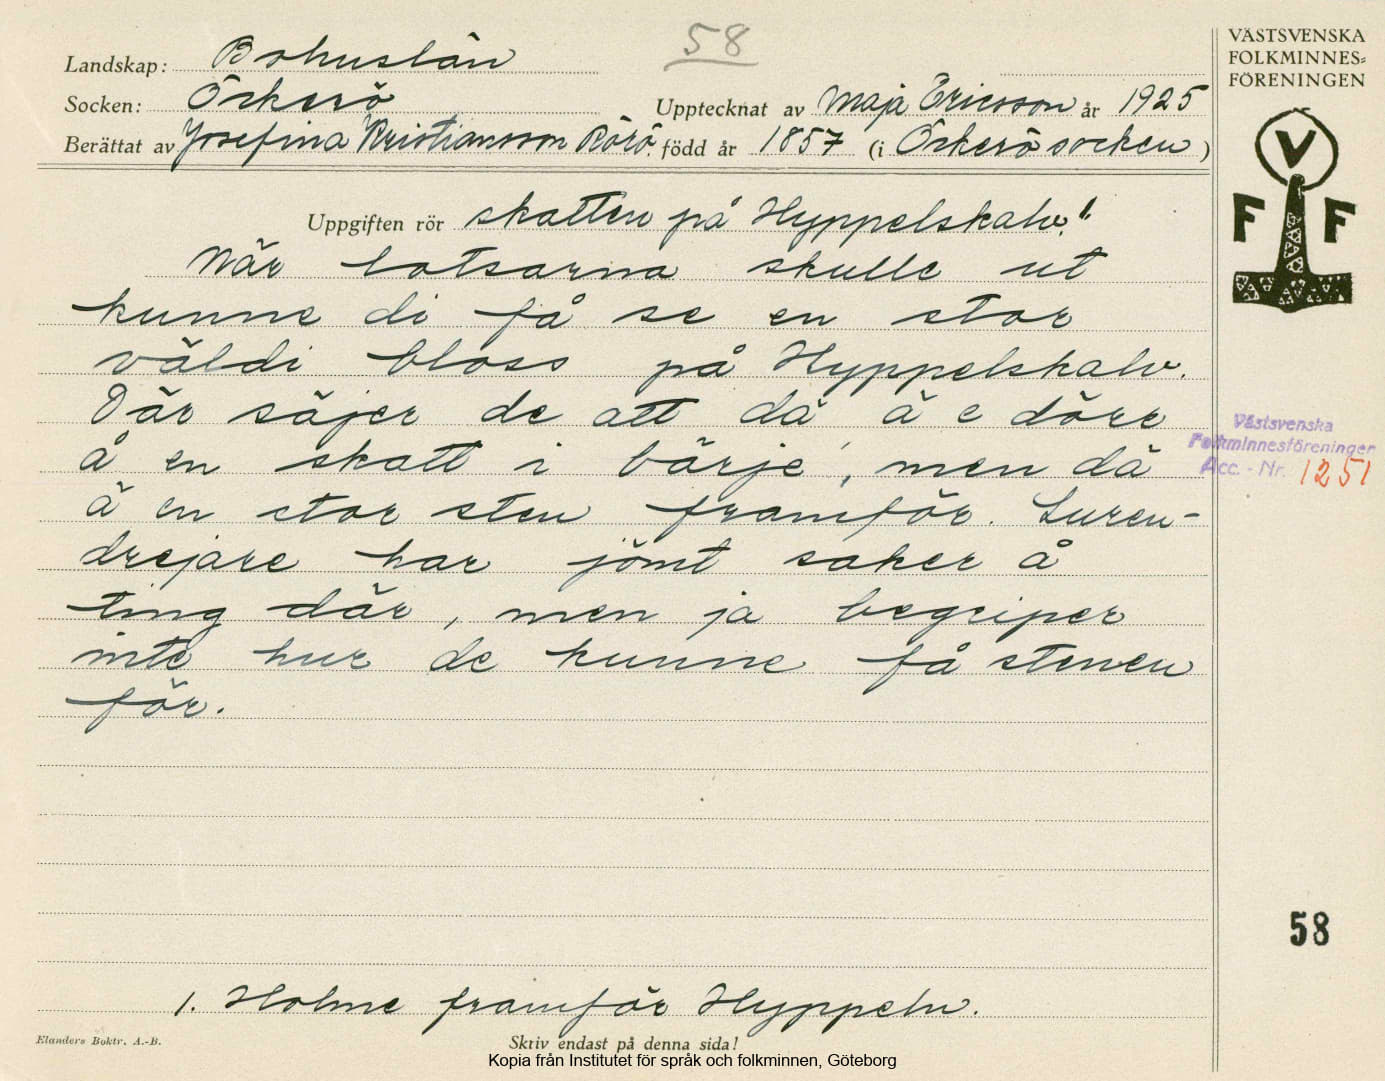 58
Landskap: Bohuslän
Socken: Öckerö
Upptecknat av Maja Ericsson år 1925
Berättat av Josefina Kristiansson Rörö. född år 1857 (i Öckerö socken)
Uppgiften rör skatten på Hyppelskalv.1.
När lotsarna skulle ut
kunne di få se en stor
väldi bloss på Hyppelskalv.
Där säjer de att dä ä e dörr
å en skatt i bärje, men dä
ä en stor sten framför. Luren-
drejare har jömt saker å
ting där, men ja begriper
inte hur de kunne få stenen
för.
1. Holme framför Hyppeln.
Elanders Boktr. A.-B.
Skriv endast på denna sida!
Kopia från Institutet för språk och folkminnen, Göteborg
VÄSTSVENSKA
FOLKMINNES=
FÖRENINGEN
V
F F
Västsvenska
Folkminnesföreningen
Acc. - Nr. 1251
58